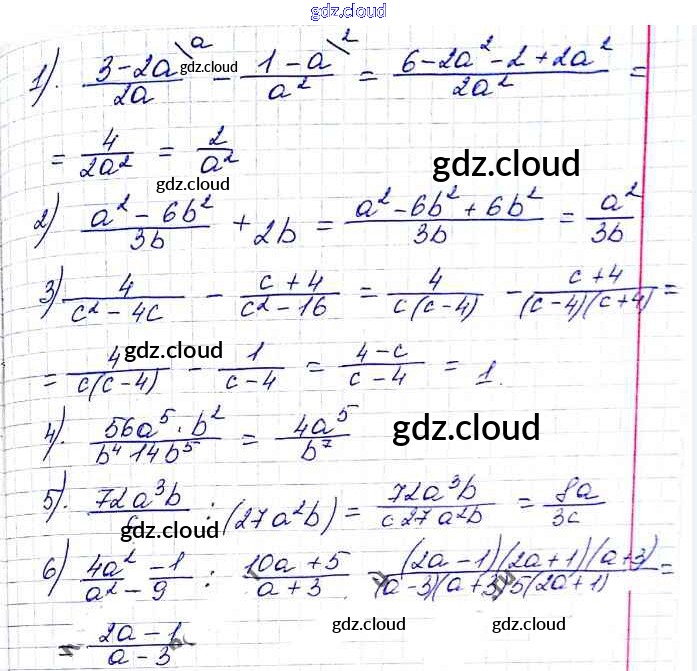 gdz.cloud
1). (3-2a\a)/2a gdz.cloud - (1-a\2)/a² = (6-2a²-2+2a²)/2a² =
= 4/2a² = 2/a² gdz.cloud gdz.cloud
2) (a²-6b²)/3b + 2b = (a²-6b²+6b²)/3b = a²/3b
3) 4/(c²-4c) - (c+4)/(c²-16) = 4/c(c-4) - (c+4)/(c-4)(c+4) =
= 4/c(c-4) gdz.cloud - 1/(c-4) = (4-c)/(c-4) = 1.
4). 56a⁵·b²/b⁴14b⁵ = 4a⁵/b⁷ gdz.cloud
5). 72a³b/ gdz.cloud : (27a²b) = 72a³b/c27a²b = 8a/3c
6) (4a²-1)/(a²-9) : (10a+5)/(a+3) (2a-1)(2a+1)(a+3)/(a-3)(a+3)5(2a+1) =
(2a-1)/(a-3) gdz.cloud gdz.cloud